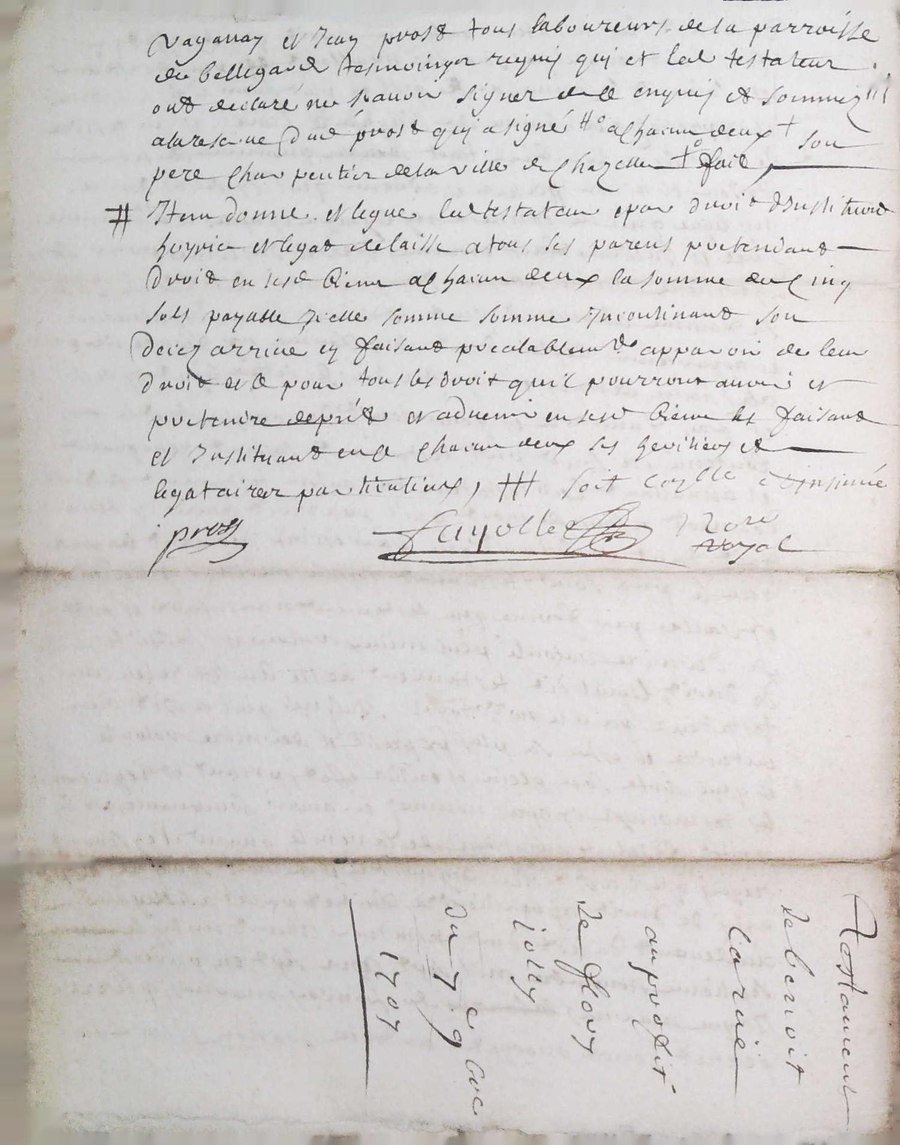 et Jean prost tous laboureurs de la parroisse
de bellegarde tesmoingz requis qui et led testateur
ont declaré ne scavoir signer de ce enquis et sommez
a la reserve dud prost qui a signé a chacun deux son
pere charpentier de la ville de Chazelle fait,
# Item donne et legue led testateur et par droit dInstitution
et legat delaisse a tous ses parens pretendant
droit en sesd biens a chacun deux la somme de cinq
sols payable Icelle somme somme Incontinant son
decez arrive en faisant prealablemt apparoir de leur
droit et ce pour tous les droit quil pourront avoir et
pretendre et advenir en sesd biens les faisant
et Instituant en ce chacun deux ses heritiers et
legataires particuliers, soit et Insinué
prost fayolle nore
royal
Testament
de benoit
larue
au proffit
de fleury
du 7e
1707